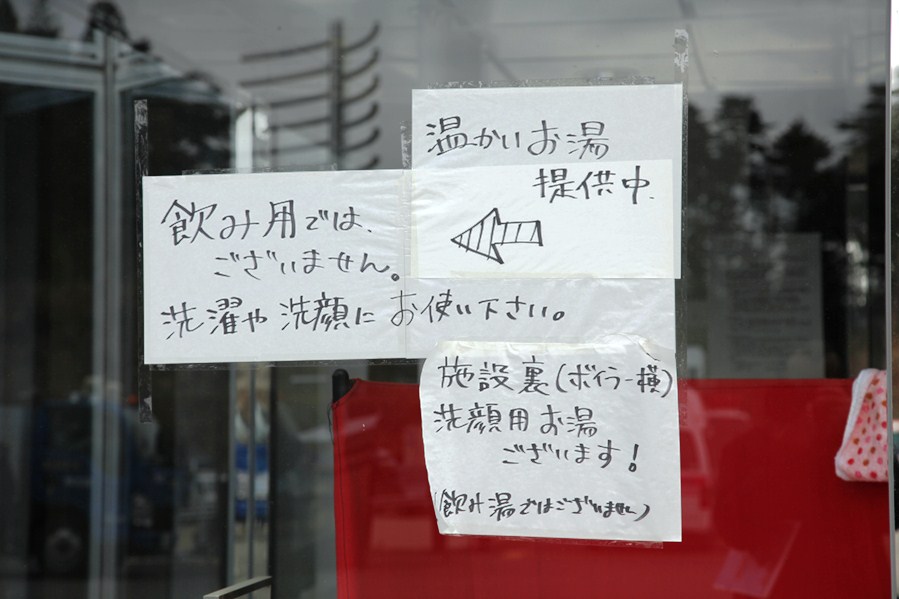 温かいお湯
提供中.
飲み用では、
ございません。
洗濯や洗顔にお使い下さい。
施設裏(ボイラー横)
洗顔用お湯
ございます!
(飲み湯ではございません)